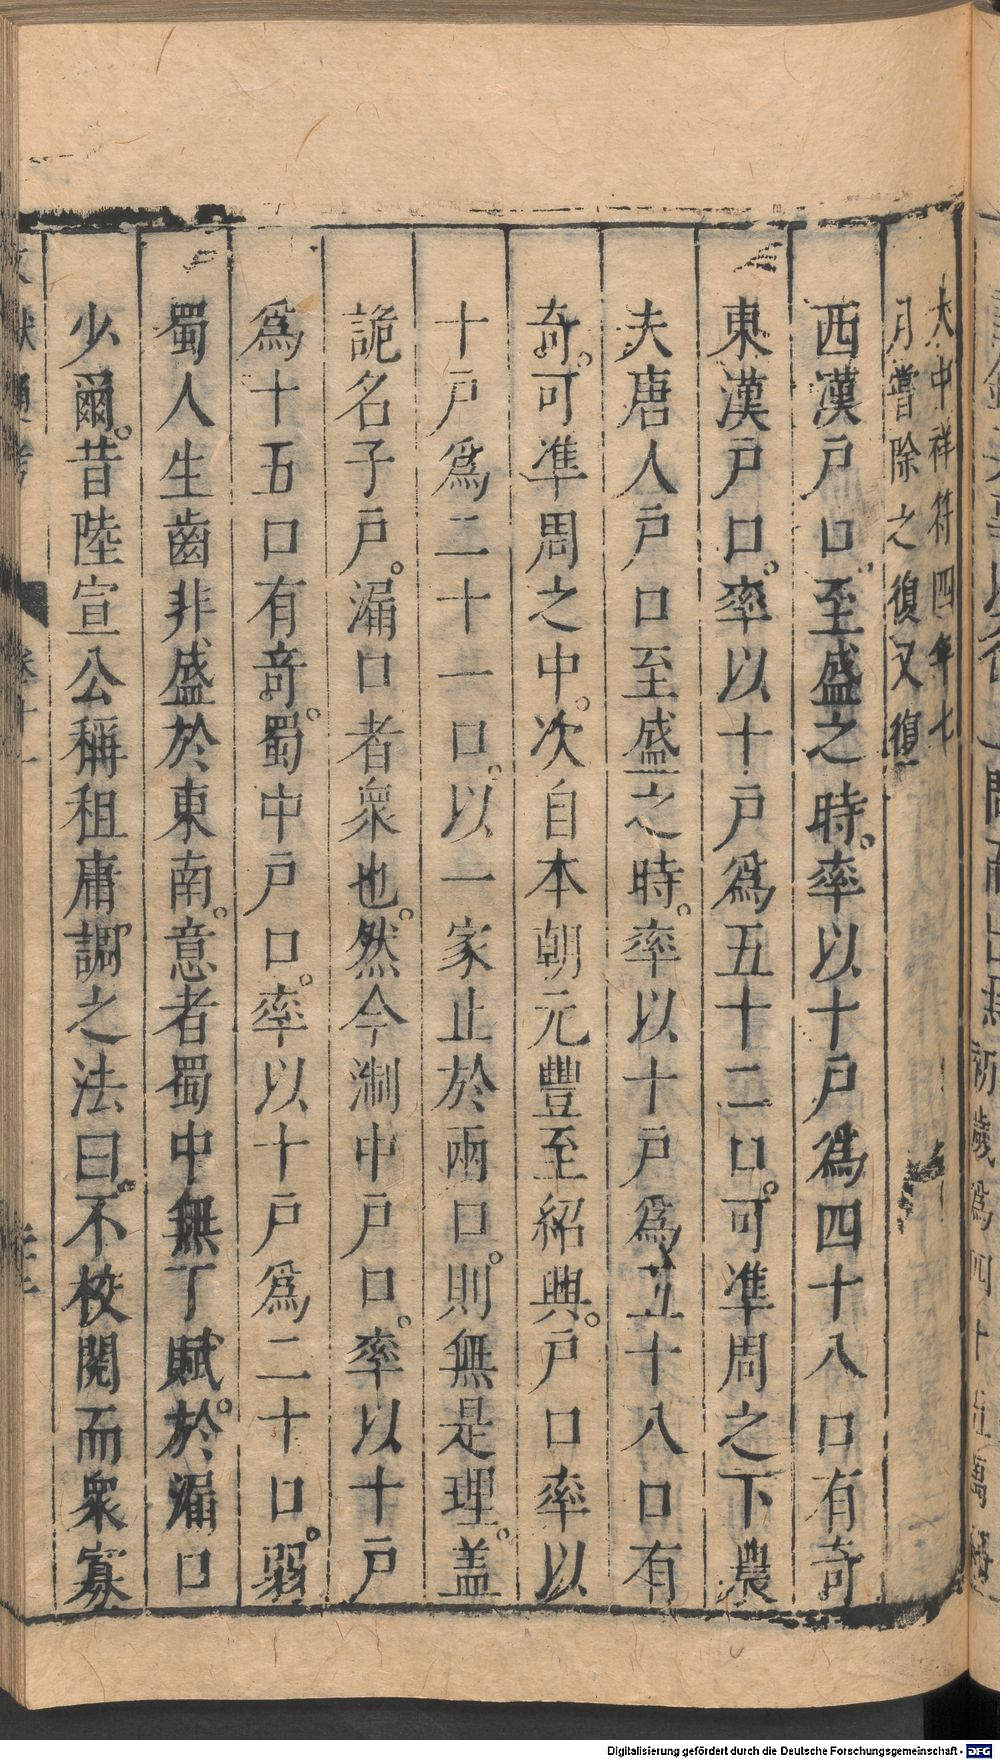 大中祥符四年七
月嘗除之復又復
西漢戸口至盛之時率以十戸爲四十八口有奇
東漢戸口率以十戸爲五十二口可準周之下農
夫唐人戸口至盛之時率以十戸爲五十八口有
奇可準周之中次自本朝元豐至紹興戸口率以
十戸爲二十一口以一家止於兩口則無是理盖
詭名子戸漏口者衆也然今浙中戸口率以十戸
爲十五口有奇蜀中戸口率以十戸爲二十口弱
蜀人生齒非盛於東南意者蜀中無丁賦於漏口
少爾昔陸宣公稱租庸調之法曰不校閱而衆寡
文獻通考
卷十一
Digitalisierung gefördert durch die Deutsche Forschungsgemeinschaft - DFG